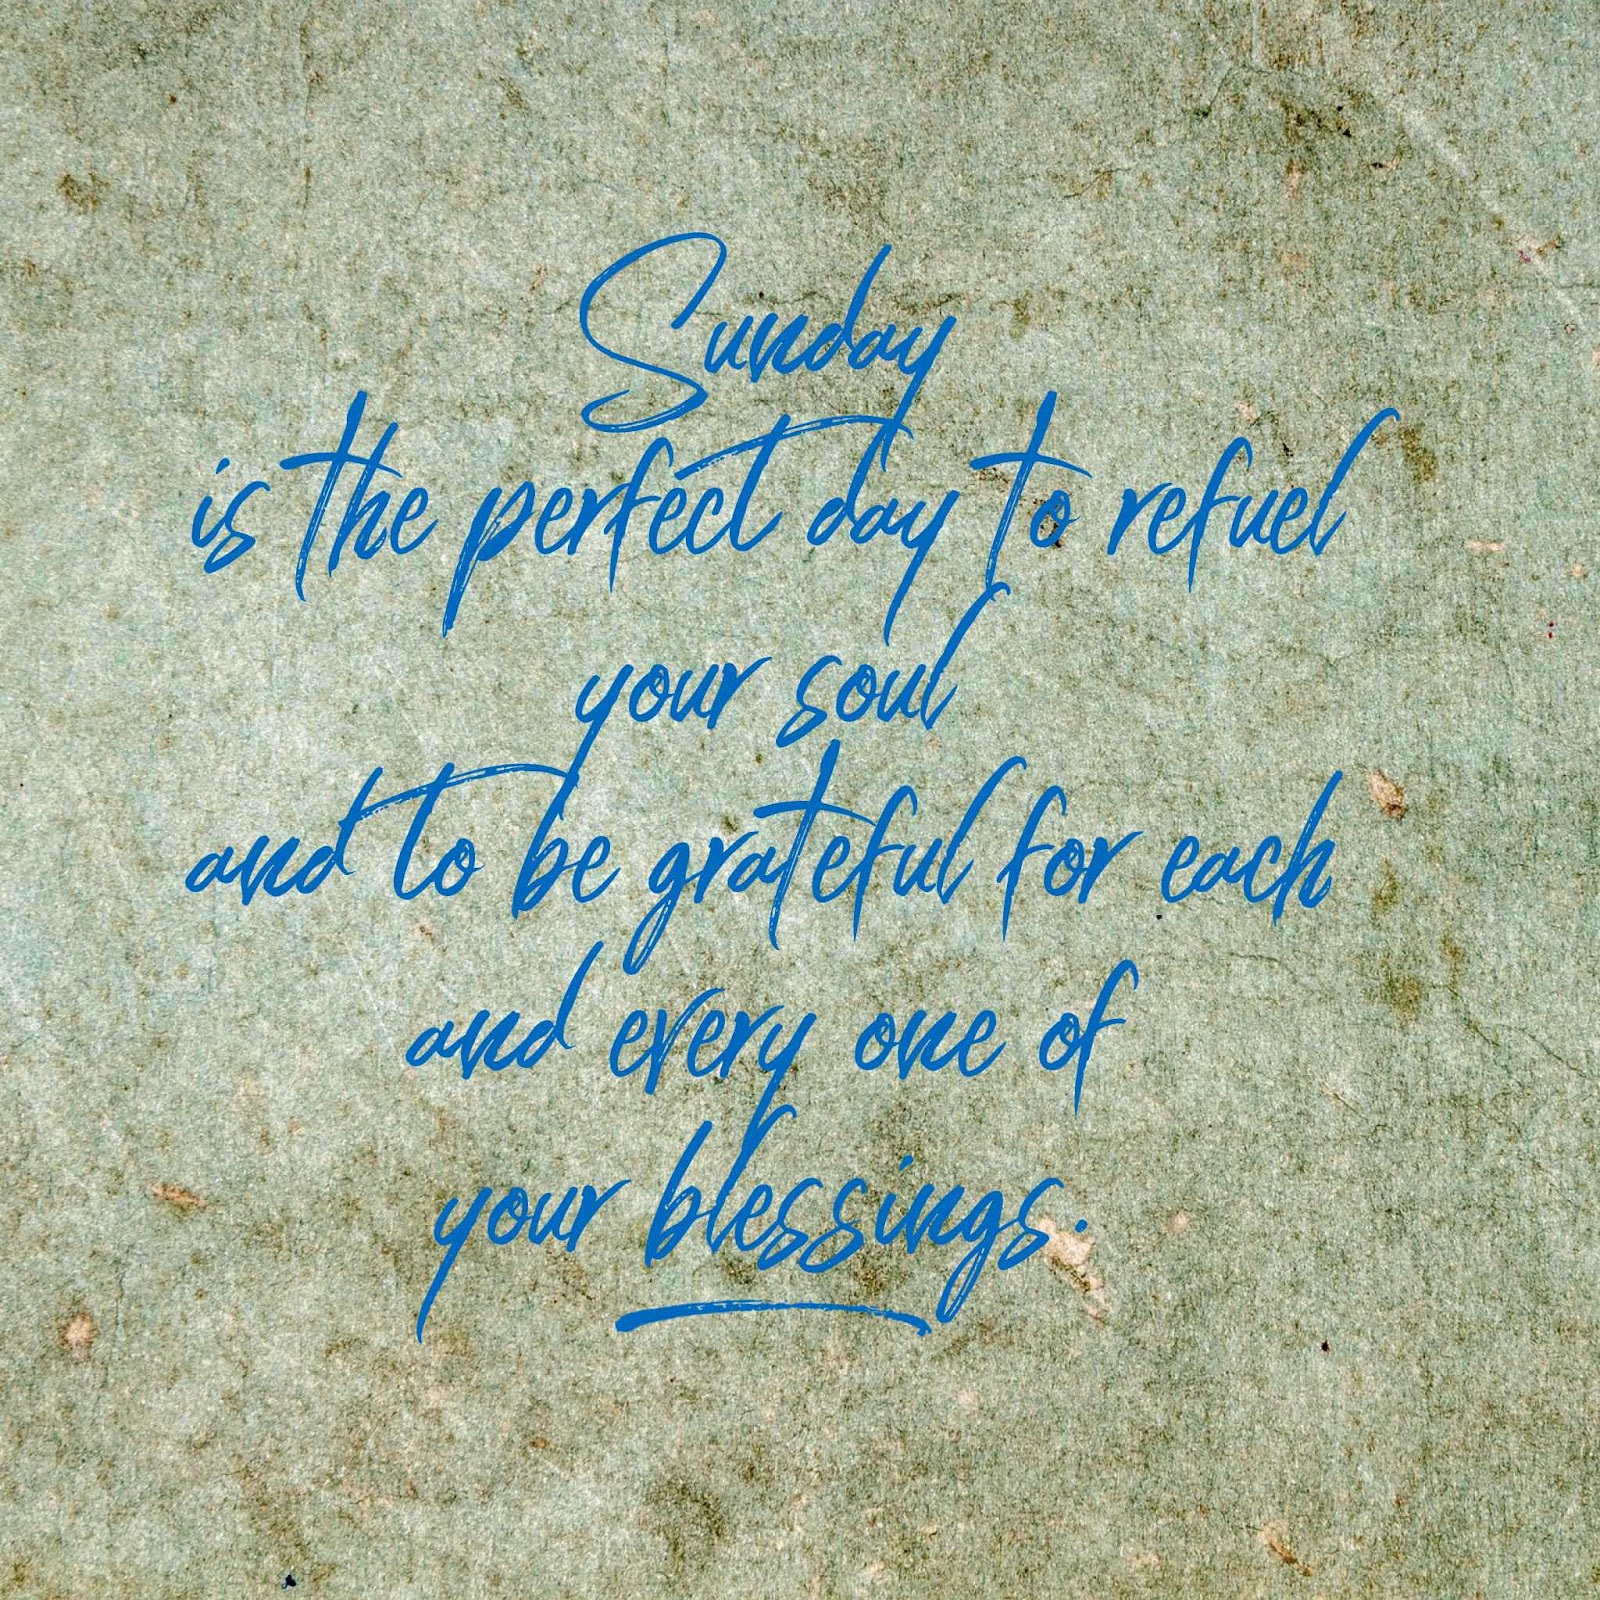 Sunday
is the perfect day to refuel
your soul
and to be grateful for each
and every one of
your blessings.